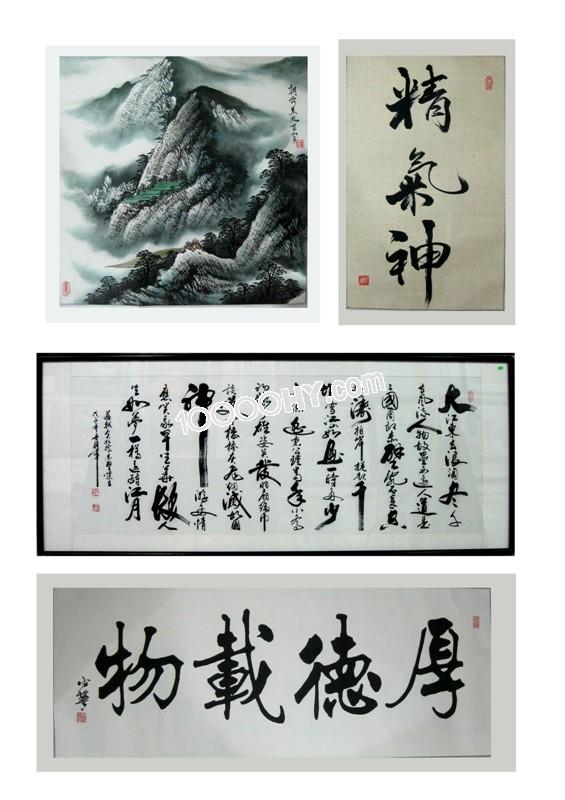 精氣神
大江東去浪淘盡千
古風流人物故壘西邊人道是
三國周郎赤壁亂石穿空
驚濤拍岸捲起千
堆雪江山如畫一時多少
豪傑遙想公瑾當年小喬
初嫁了雄姿英發羽扇綸巾
談笑間檣櫓灰飛煙滅故國
神遊多情
應笑我早生華髮人
生如夢一樽還酹江月
10000HY.COM
厚德載物